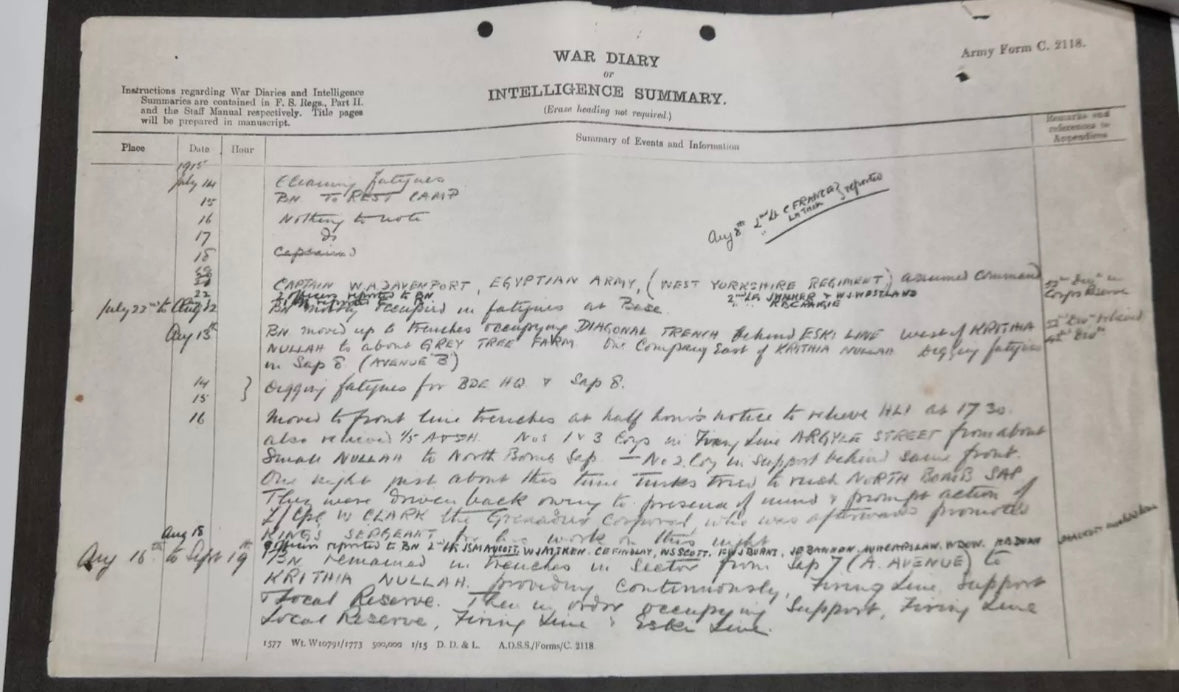 Army Form C. 2118.
WAR DIARY
or
INTELLIGENCE SUMMARY.
(Erase heading not required.)
Instructions regarding War Diaries and Intelligence
Summaries are contained in F. S. Regs., Part II.
and the Staff Manual respectively. Title pages
will be prepared in manuscript.
Place Date Hour Summary of Events and Information Remarks and references to Appendices
1915
July 14 Cleaning fatigues
15 BN TO REST CAMP
16 Nothing to note
17 do
18 Captain
Aug 8th 2nd Lt C FRANCE reported
CAPTAIN W.A. DAVENPORT, EGYPTIAN ARMY, (WEST YORKSHIRE REGIMENT) assumed command
22 officers reported to BN 2nd Lts & W.J. WESTLAND
July 22nd to Aug 12 BN mostly occupied in fatigues at Base. 52nd Divn in Corps Reserve
Aug 13th BN. moved up to trenches occupying DIAGONAL TRENCH behind ESKI LINE west of KRITHIA 52nd Divn relieved
NULLAH to about GREY TREE FARM. One Company East of KRITHIA NULLAH. Digging fatigues
in Sap 8 (AVENUE B)
14 } Digging fatigues for BDE HQ & Sap 8.
15
16 Moved to front line trenches at half hour's notice to relieve HLI at 1730.
also relieved 1/5 A&SH. Nos 1 & 3 Coys in Firing Line ARGYLE STREET from about
Small NULLAH to North Bomb Sap — No 2 Coy in support behind same front.
One night just about this time Turks tried to rush NORTH BOMB SAP
They were driven back owing to presence of mind & prompt action of
L/Cpl W CLARK the Grenadier Corporal, who was afterwards promoted
KINGS SERGEANT for his work on this night
Aug 18 officers reported to BN 2nd Lts W AITKEN, C E FINDLAY, N S SCOTT, J B BANNON, W DOW
Aug 16th to Sept 19th BN remained in trenches in sector from Sap 7 (A. AVENUE) to
KRITHIA NULLAH. providing continuously, Firing Line, Support
& Local Reserve. Then in order occupying Support, Firing Line
Local Reserve, Firing Line & Eski Line.
1577 Wt. W10791/1773 500,000 1/15 D. D. & L. A.D.S.S./Forms/C. 2118